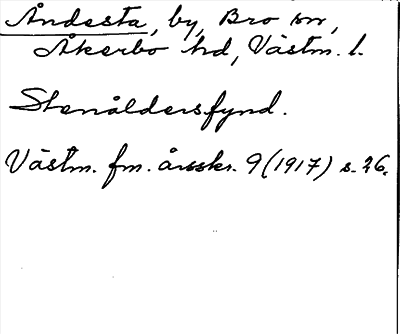 Åndesta, by, Bro sn,
Åkerbo hd, Västm. l.
Stenåldersfynd.
Västm. fm. årsskr. 9 (1917) s. 26.